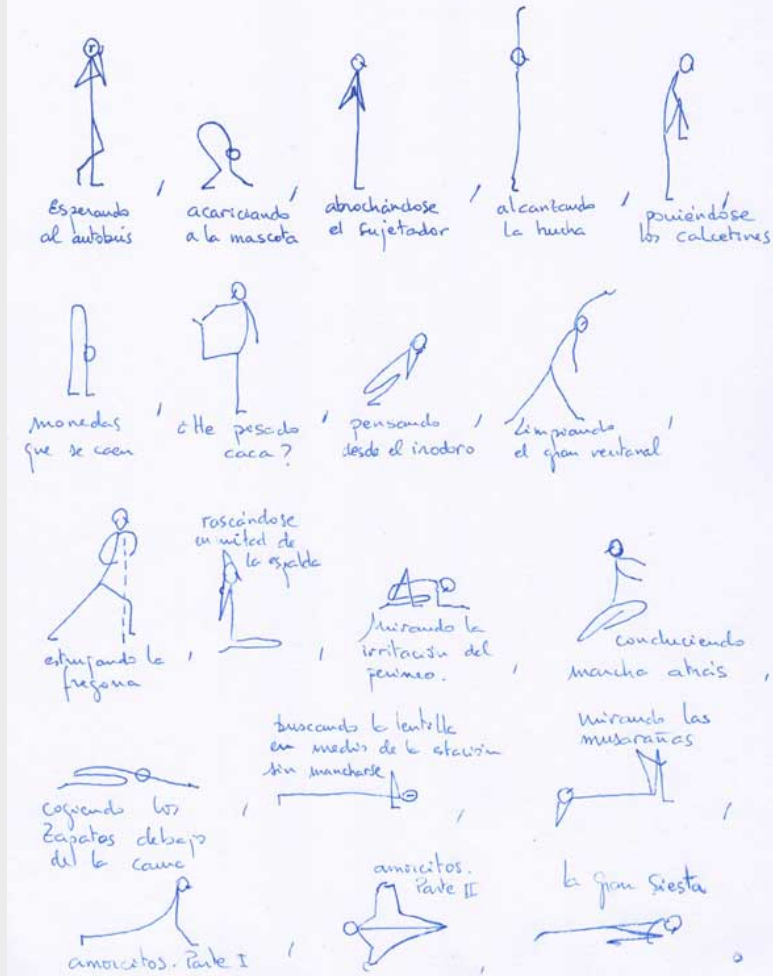 Esperando
al autobús
,
acariciando
a la mascota
,
abrochándose
el sujetador
,
alcanzando
la hucha
,
poniéndose
los calcetines
,
monedas
que se caen
,
¿He pisado
caca?
,
pensando
desde el inodoro
,
Limpiando
el gran ventanal
,
estrujando la
fregona
,
rascándose
en mitad de
la espalda
,
Mirando la
irritación del
perineo.
,
conduciendo
marcha atrás
,
cogiendo los
zapatos debajo
de la cama
,
buscando la lentilla
en medio de la estación
sin mancharse
,
Mirando las
musarañas
,
amorcitos. Parte I
,
amorcitos.
Parte II
,
la gran siesta